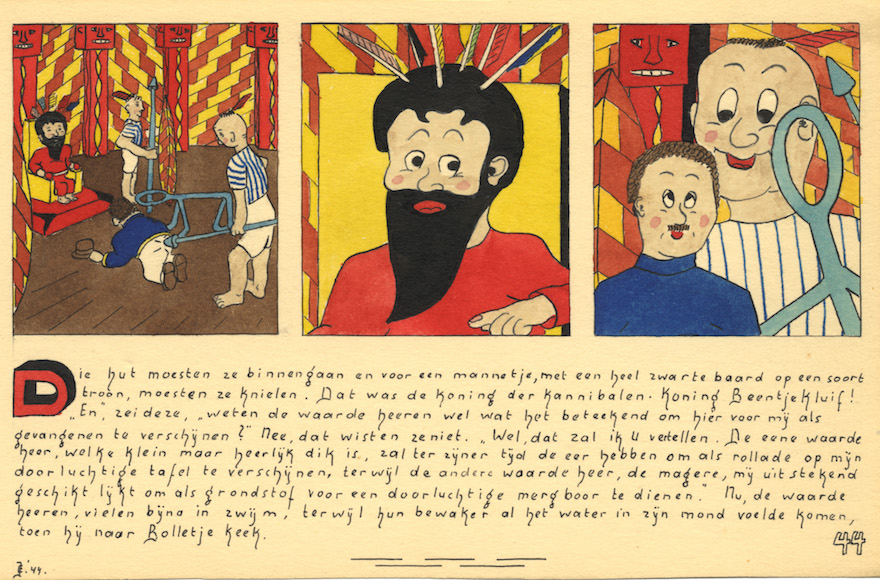 Die hut moesten ze binnengaan en voor een mannetje, met een heel zwarte baard op een soort
troon, moesten ze knielen. Dat was de koning der kannibalen. Koning Beentjekluif!
„En", zei deze, „weten de waarde heeren wel wat het beteekend om hier voor mij als
gevangenen te verschijnen?" Nee, dat wisten ze niet. „Wel, dat zal ik U vertellen. De eene waarde
heer, welke klein maar heerlijk dik is, zal ter zijner tijd de eer hebben om als rollade op mijn
doorluchtige tafel te verschijnen, terwijl de andere waarde heer, de magere, mij uitstekend
geschikt lijkt om als grondstof voor een doorluchtige mergboor te dienen." Nu, de waarde
heeren, vielen bijna in zwijm, terwijl hun bewaker al het water in zijn mond voelde komen,
toen hij naar Bolletje keek.
44
'44.